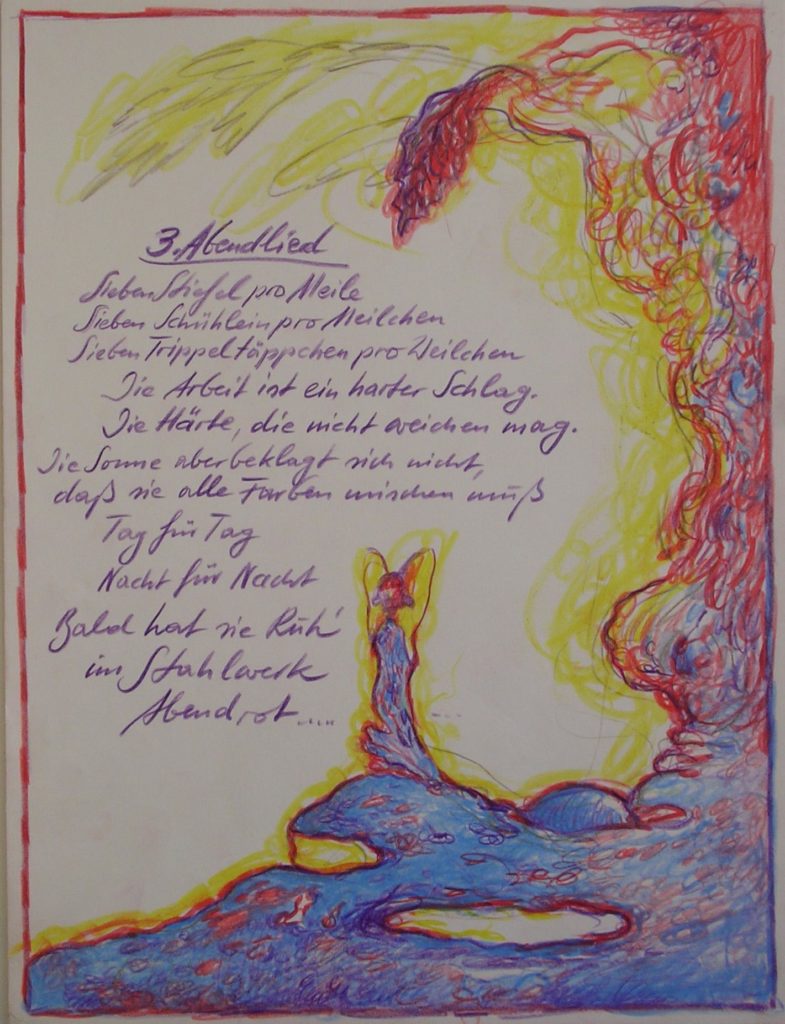 3. Abendlied
Sieben Stiefel pro Meile
Sieben Schühlein pro Meilchen
Sieben Trippeltäppchen pro Weilchen
Die Arbeit ist ein harter Schlag.
Die Härte, die nicht weichen mag.
Die Sonne aber beklagt sich nicht,
daß sie alle Farben mischen muß
Tag für Tag
Nacht für Nacht
Bald hat sie Ruh'
im Stahlwerk
Abendrot....